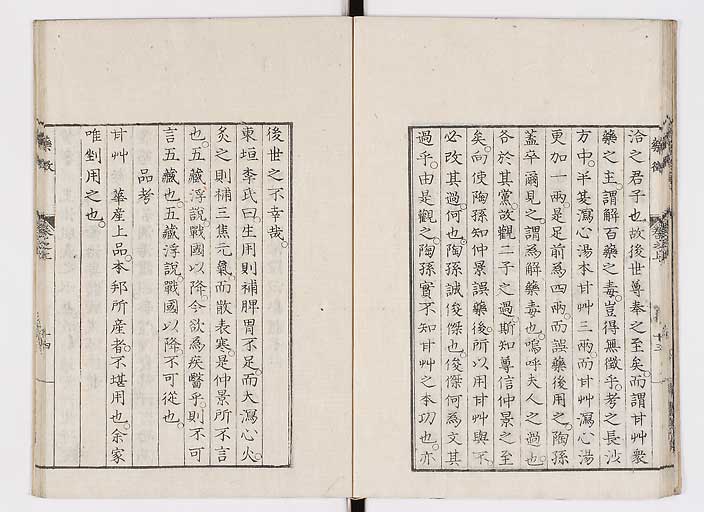 洽之君子也故後世尊奉之至矣。而謂甘艸衆
藥之主。謂解百藥之毒。豈得無徵乎。考之長沙
方中。半夏瀉心湯本甘艸三兩。而甘艸瀉心湯
更加一兩。是足前爲四兩。而誤藥後用之。陶孫
蓋卒爾見之。謂爲解藥毒也。嗚呼夫人之過也。
各於其黨。故觀二子之過。斯知尊信仲景之至
矣。向使陶孫知仲景誤藥後。所以用甘艸與不。
必改其過何也。陶孫誠俊傑也。俊傑何爲文其
過乎。由是觀之。陶孫實不知甘艸之本功也。亦
藥徵
十三
後世之不幸哉。
東垣李氏曰。生用則補脾胃不足。而大瀉心火。
炙之則補三焦元氣。而散表寒。是仲景所不言
也。五藏浮說。戰國以降。今欲爲疾醫乎。則不可
言五藏也。五藏浮說。戰國以降不可從也。
品考
甘艸 華産上品。本邦所産者。不堪用也。余家
唯剉用之也。
藥徵